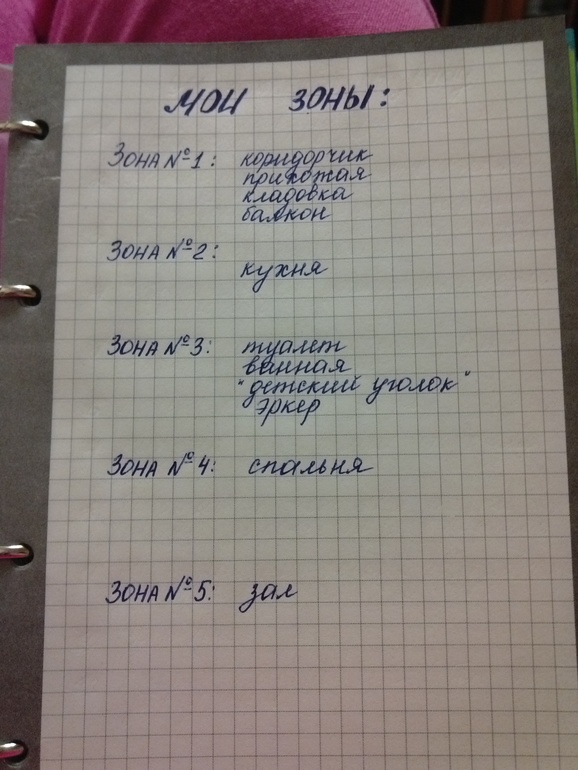 МОИ ЗОНЫ:
ЗОНА №1: коридорчик
прихожая
кладовка
балкон
ЗОНА №2:
кухня
ЗОНА №3: туалет
ванная
"детский уголок"
эркер
ЗОНА №4: спальня
ЗОНА №5: зал